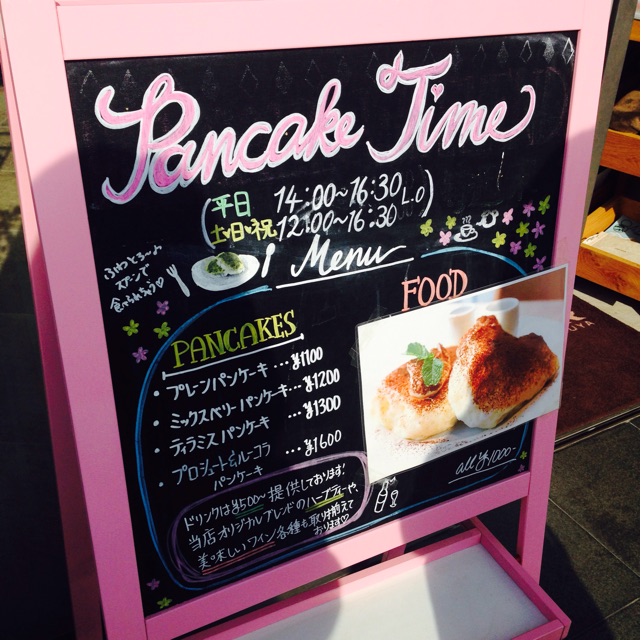 Pancake Time
平日 14:00~16:30 L.O
土・日・祝 12:00~16:30
Menu
ふわっとろ〜♪
スプーンで
食べれちゃう♡
PANCAKES
・プレーンパンケーキ…¥1100
・ミックスベリーパンケーキ…¥1200
・ティラミスパンケーキ …¥1300
・プロシュート&ルーコラ
パンケーキ …¥1600
FOOD
all ¥1000-
ドリンクは¥500〜提供しております!
当店オリジナルブレンドのハーブティーや、
美味しいワイン各種も取り揃えて
おります♡